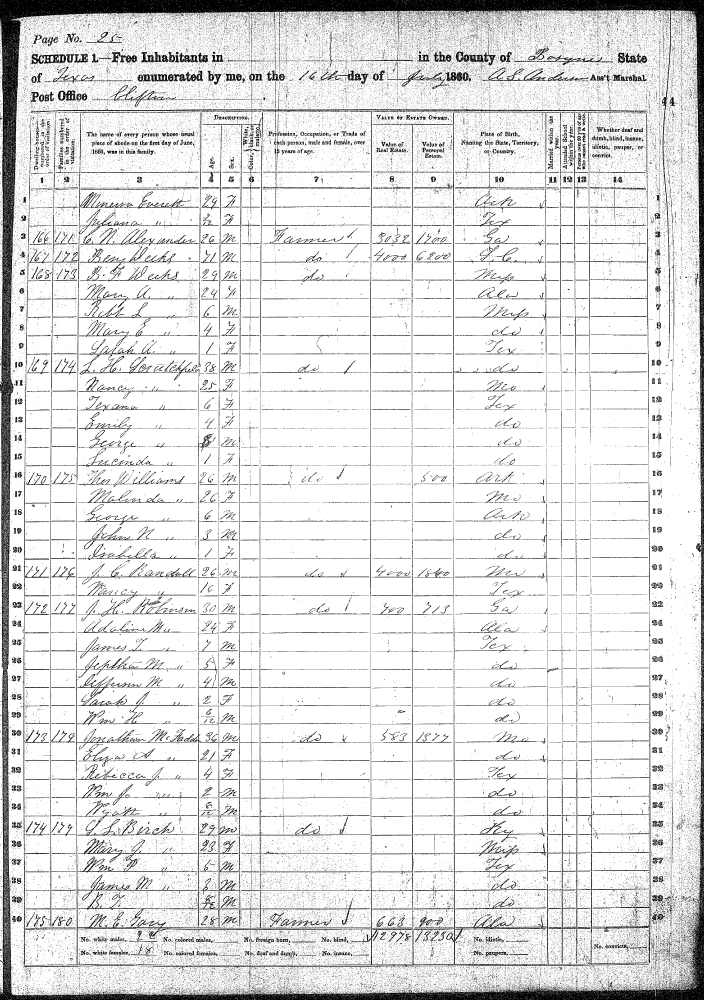 Page No. 25
SCHEDULE 1.—Free Inhabitants in in the County of Bosque State
of Texas enumerated by me, on the 16th day of July 1860. A. S. Anderson Ass't Marshal.
Post Office Clifton
44
Dwelling-houses numbered in the order of visitation.
Families numbered in the order of visitation.
The name of every person whose usual place of abode on the first day of June, 1860, was in this family.
DESCRIPTION.
Age.
Sex.
Profession, Occupation, or Trade of each person, male and female, over 15 years of age.
VALUE OF ESTATE OWNED.
Value of Real Estate.
Value of Personal Estate.
Place of Birth, Naming the State, Territory, or Country.
Married within the year.
Attended School within the year.
Whether deaf and dumb, blind, insane, idiotic, pauper, or convict.
1 2 3 4 5 6 7 8 9 10 11 12 13 14
1 Minerva Everett 29 F Ark 1
2 Juliana " F Tex 2
3 166 171 C. N. Alexander 26 M Farmer 3032 1700 Ga 3
4 167 172 Benj Weeks 71 M do 4000 6200 S. C. 4
5 168 173 B. F Weeks 29 M do Miss 5
6 Mary A. " 24 F Ala 6
7 Robt L " 6 M Miss 7
8 Mary E " 4 F do 8
9 Sarah A. " 1 F Tex 9
10 169 174 L. H. Scrutchfield 38 M do do 10
11 Nancy " 25 F Mo 11
12 Texana " 6 F Tex 12
13 Emily " 4 F do 13
14 George " M do 14
15 Lucinda " 1 F do 15
16 170 175 Thos Williams 26 M do 500 Ark 16
17 Malinda " 26 F Mo 17
18 George " 6 M Ark 18
19 John N " 3 M do 19
20 Isabella " 1 F do 20
21 171 176 J. C. Randall 26 M do 4000 1840 Mo 21
22 Nancy " 16 F Tex 22
23 172 177 J. H. Robinson 30 M do 700 713 Ga 23
24 Adaline M " 24 F Ala 24
25 James T. " 7 M Tex 25
26 Jeptha M " 5 F do 26
27 Jefferson M " 4 M do 27
28 Sarah J " 2 F do 28
29 Wm H " 6/12 M do 29
30 173 178 Jonathan McFadden 36 M do 583 1377 Mo 30
31 Eliza A " 21 F do 31
32 Rebecca J " 4 F Tex 32
33 Wm J " 2 M do 33
34 Wyatt " 6/12 M do 34
35 174 179 G. L. Birch 29 M do Ky 35
36 Mary J " 23 F Miss 36
37 Wm P " 5 M Tex 37
38 James M " 3 M do 38
39 B. T. M do 39
40 175 180 M. E. Gary 28 M Farmer 663 900 Ala 40
No. white males, No. colored males, No. foreign born, No. blind, 12978 13230 No. idiotic, No. convicts,
No. white females, 18 No. colored females, No. deaf and dumb, No. insane, No. paupers,